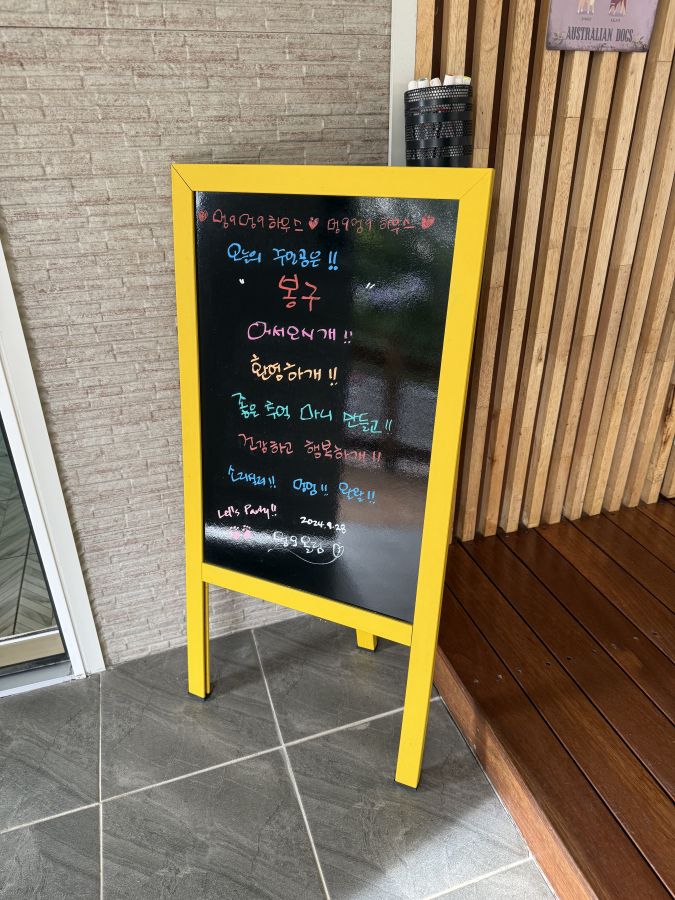 AUSTRALIAN DOGS
♥ 멍멍하우스 ♥ 멍멍하우스 ♥
오늘의 주인공은 !!
" 봉구 "
어서오시개 !!
환영하개 !!
좋은 추억 마니 만들고 !!
건강하고 행복하개 !!
소리질러 !! 멍멍 !! 왈왈 !!
Let's Party !!
2024.9.28